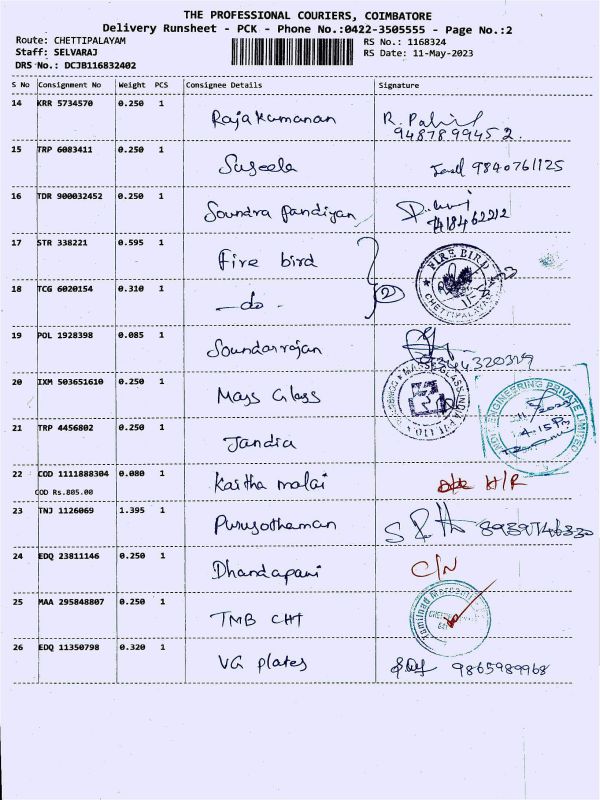 THE PROFESSIONAL COURIERS, COIMBATORE
Delivery Runsheet - PCK - Phone No.:0422-3505555 - Page No.:2
Route: CHETTIPALAYAM
RS No.: 1168324
Staff: SELVARAJ
RS Date: 11-May-2023
DRS No.: DCJB116832402
S No Consignment No Weight PCS Consignee Details Signature
14 KRR 5734570 0.250 1 Rajakumanan R.
9487899452.
15 TRP 6083411 0.250 1 Suseela 9840761125
16 TDR 900032452 0.250 1 Soundra pandiyan
17 STR 338221 0.595 1 Fire bird FIRE BIRD
18 TCG 6020154 0.310 1 -do- 2 CHETTIPALAYAM
19 POL 1928398 0.085 1 Soundarrajan
20 IXM 503651610 0.250 1 Mass Glass
ENGINEERING PRIVATE LIMITED
21 TRP 4456802 0.250 1 Jandia 4.15
22 COD 1111888304 0.080 1 Kastha malai H/R
COD Rs.805.00
23 TNJ 1126069 1.395 1 Purusothaman
24 EDQ 23811146 0.250 1 Dhandapani C/N
25 MAA 295848807 0.250 1 TMB CHT Tamilnad Mercantile
26 EDQ 11350798 0.320 1 VG plates 9865989968